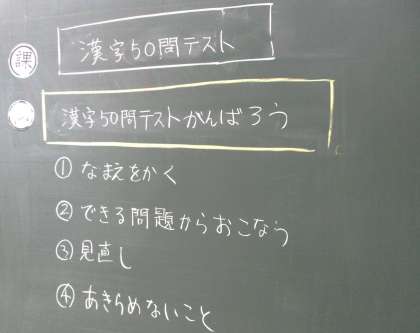 課
漢字50問テスト
漢字50問テストがんばろう
①なまえをかく
②できる問題からおこなう
③見直し
④あきらめないこと